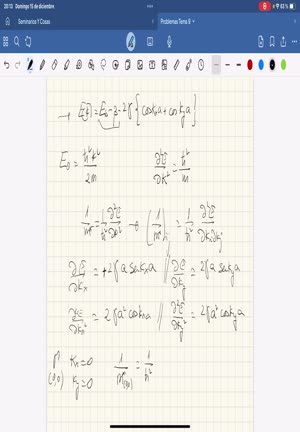 20:13 Domingo 15 de diciembre
63 %
Seminarios Y Cosas
Problemas Tema 9
→ E(k) = E₀ - β - 2γ { cos kₓa + cos k_y a }
E₀ = ħ²k² / 2m    ∂²E/∂k² = ħ²/m
1/m* = 1/ħ² ∂²E/∂k² → (1/m*)ᵢⱼ = 1/ħ² ∂²E/∂kᵢ∂kⱼ
∂E/∂kₓ = +2γ a sen kₓa // ∂E/∂k_y = 2γ a sen k_y a
∂²E/∂kₓ² = 2γa² cos kₓa // ∂²E/∂k_y² = 2γa² cos k_y a
Γ (0,0)  kₓ = 0  k_y = 0    1/m*(0,0) = 1/ħ²